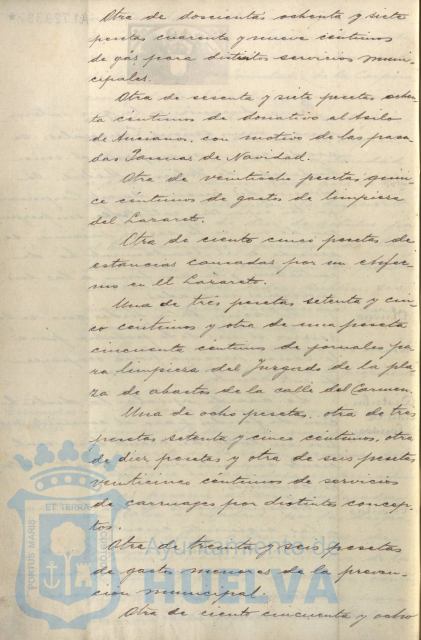 Otra de doscientas ochenta y siete
pesetas cuarenta y nueve céntimos
de gas para distintos servicios muni-
cipales.
Otra de sesenta y siete pesetas ochen-
ta céntimos de donativo al Asilo
de Ancianos, con motivo de las pasa-
das Pascuas de Navidad.
Otra de veintiocho pesetas quin-
ce céntimos de gastos de limpieza
del Lazareto.
Otra de ciento cinco pesetas de
estancias causadas por un
en el Lazareto.
Una de tres pesetas setenta y cin-
co céntimos y otra de una peseta
cincuenta céntimos de jornales pa-
ra limpieza del Juzgado de la pla-
za de abastos de la calle del Carmen.
Una de ocho pesetas, otra de tres
pesetas setenta y cinco céntimos, otra
de diez pesetas y otra de seis pesetas
veinticinco céntimos de servicios
de carruages por distintos concep-
tos.
Otra de treinta y seis pesetas
de gastos menores de la preven-
ción municipal.
Otra de ciento cincuenta y ocho
PORTUS MARIS ET TERRÆ
Ayuntamiento de
HUELVA